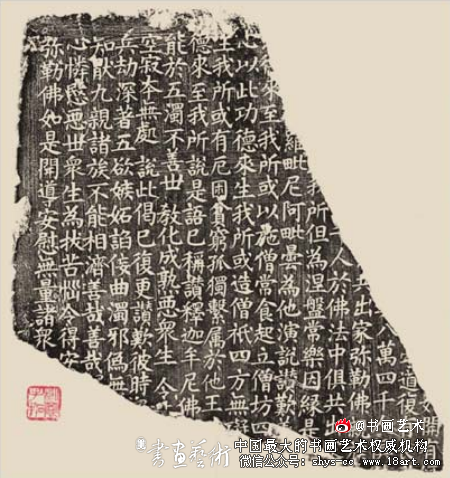 道復
八萬四千
共出家弥勒佛
人於佛法中俱共
我所但為涅盤常樂因緣是
維毗尼阿毗曇為他演說讃歎
德來至我所或以施僧當食起立僧坊四
心以此功德來生我所或造僧祇四方無
生我所或有厄困貧窮孤獨繫属於他王
德來至我所說是語已稱讃釋迦牟尼佛
能於五濁不善世教化成熟惡衆生令
空寂本無處 說此偈已復更讃歎彼時
兵劫深著五欲嫉妬諂佞曲濁邪偽無
九親諸族不能相濟善哉善哉
心憐愍惡世衆生為拔苦惱令得安
弥勒佛如是開道安慰無量諸衆
@书画艺术
書畫艺術
中国最大的书画艺术权威机构
微信公众号：shys-cc www.18art.com